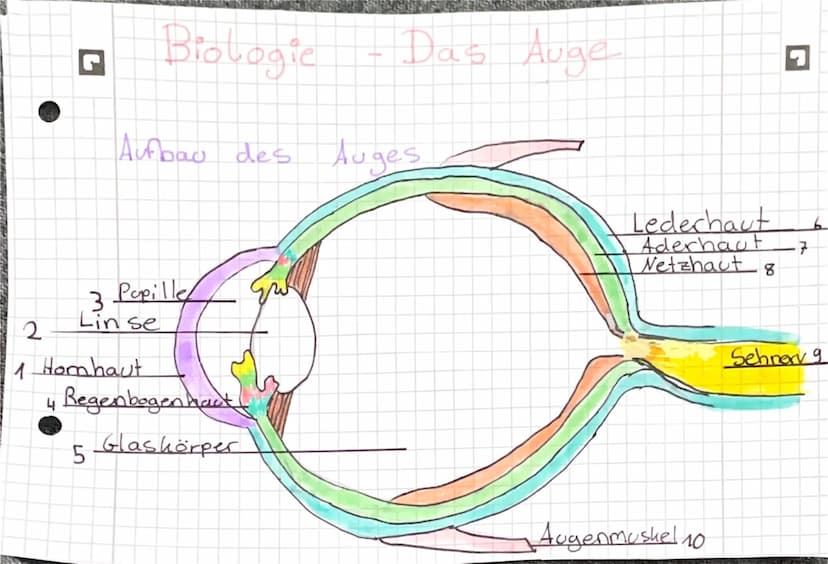 Biologie - Das Auge
Aufbau des Auges
Lederhaut 6
Aderhaut 7
Netzhaut 8
3 Pupille
2 Linse
1 Hornhaut
4 Regenbogenhaut
5 Glaskörper
Sehnerv 9
Augenmuskel 10